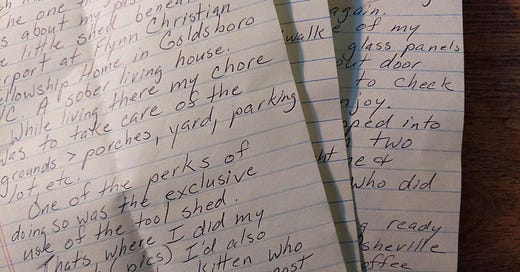 the one th
s about my pas
e little shed benea
arport at Flynn Christian
ellowship Home in Goldsboro
C. A sober living house.
While living there my chore
was to take care of the
grounds > porches, yard, parking
lot, etc.
One of the perks of
doing so was the exclusive
use of the tool shed.
That's where I did my
(pics) I'd also
kitten who
most
again.
walk
e of my
glass panels
out door
to check
njoy.
ped into
two
ht
ne &
who did
ready
sheville
offee